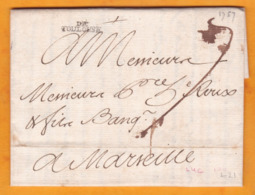 1767
DE
TOULOUSE
A Messieurs
Messieurs
Roux
& fils Banq.rs
a Marseille